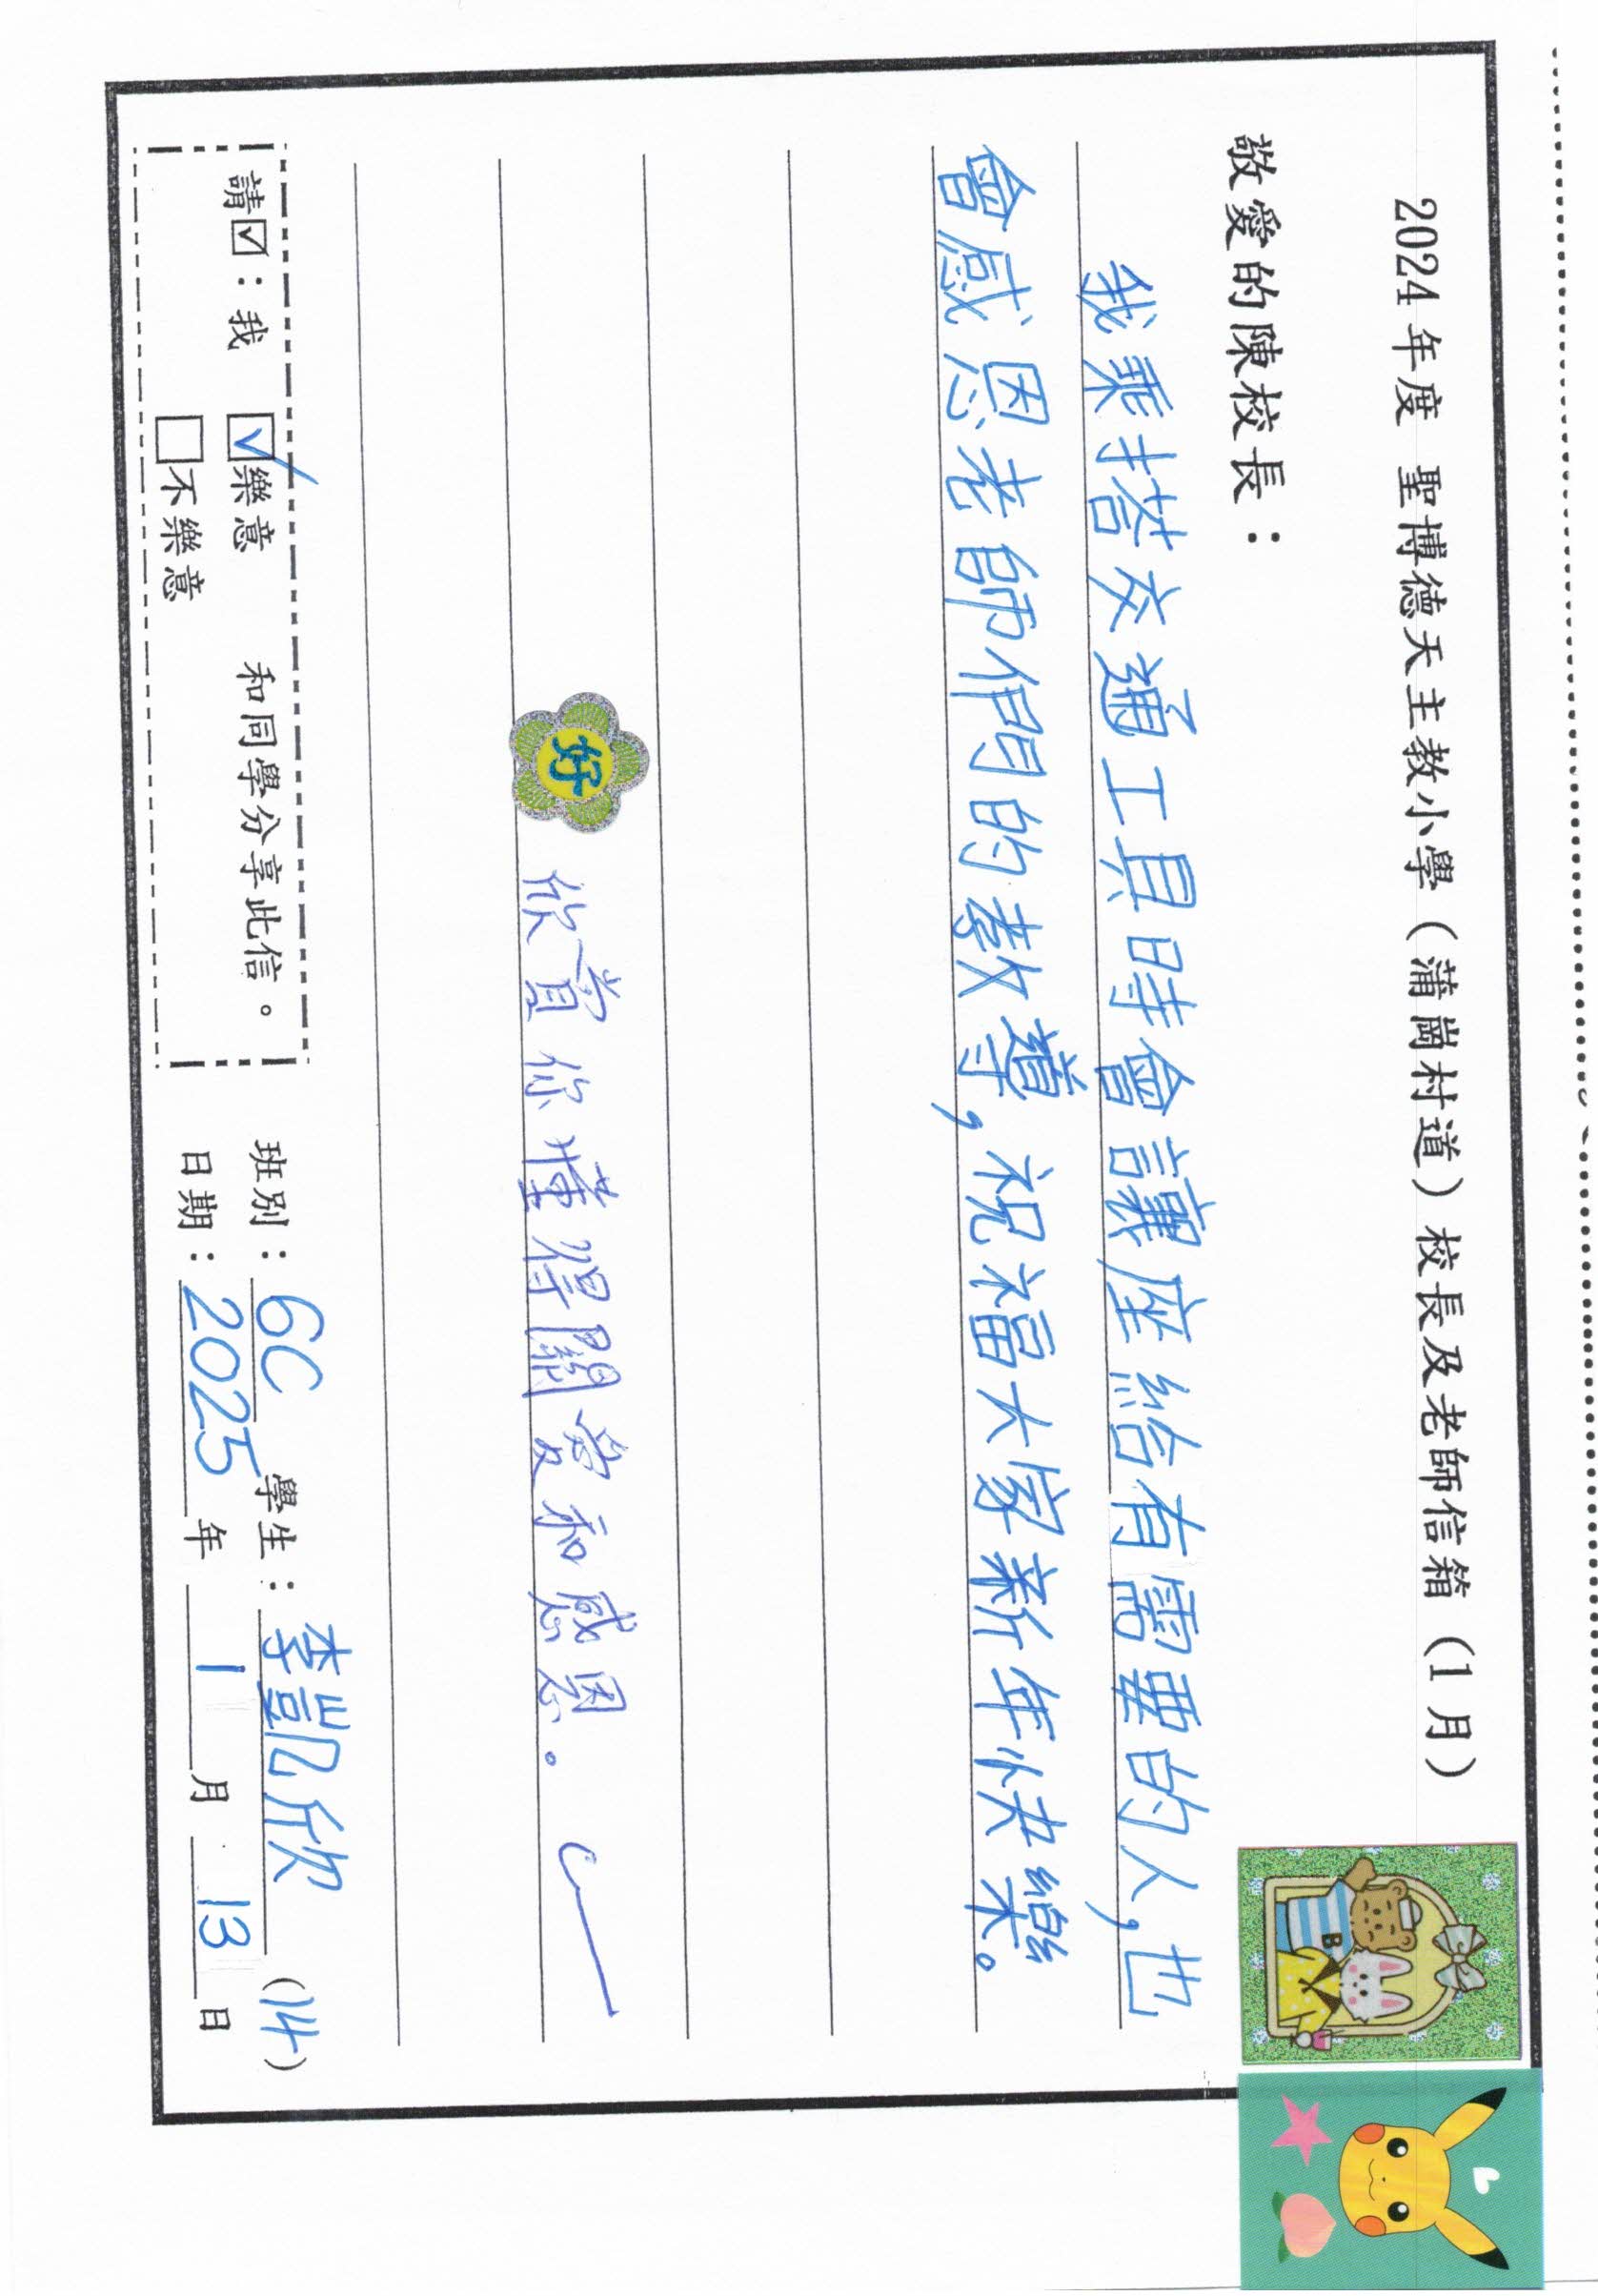 2024年度 聖博德天主教小學（蒲崗村道）校長及老師信箱（1月）
敬愛的陳校長：
我乘搭交通工具時會讓座給有需要的人，也
會感恩老師們的教導，祝福大家新年快樂。
好
欣賞你懂得關愛和感恩。
請☑：我 ☑樂意 和同學分享此信。
☐不樂意
班別：6C 學生：李凱欣（14）
日期：2025年1月13日
B